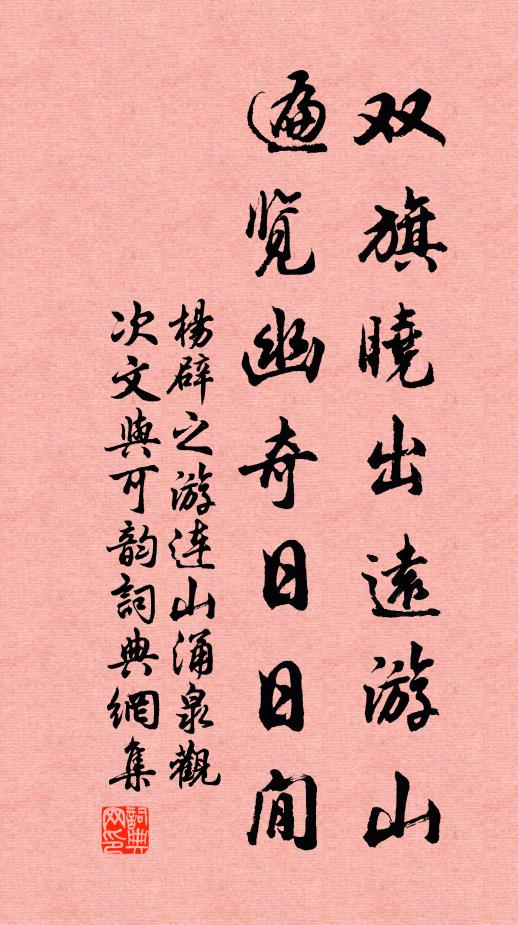 双旗曉出遠游山
遍览幽奇日日间
楊辟之游连山涌泉觀
次文與可韵詞典網集
詞典网印